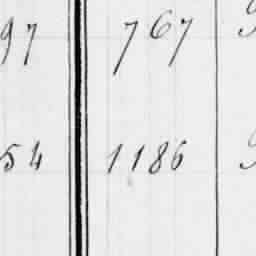 97 767
54 1186